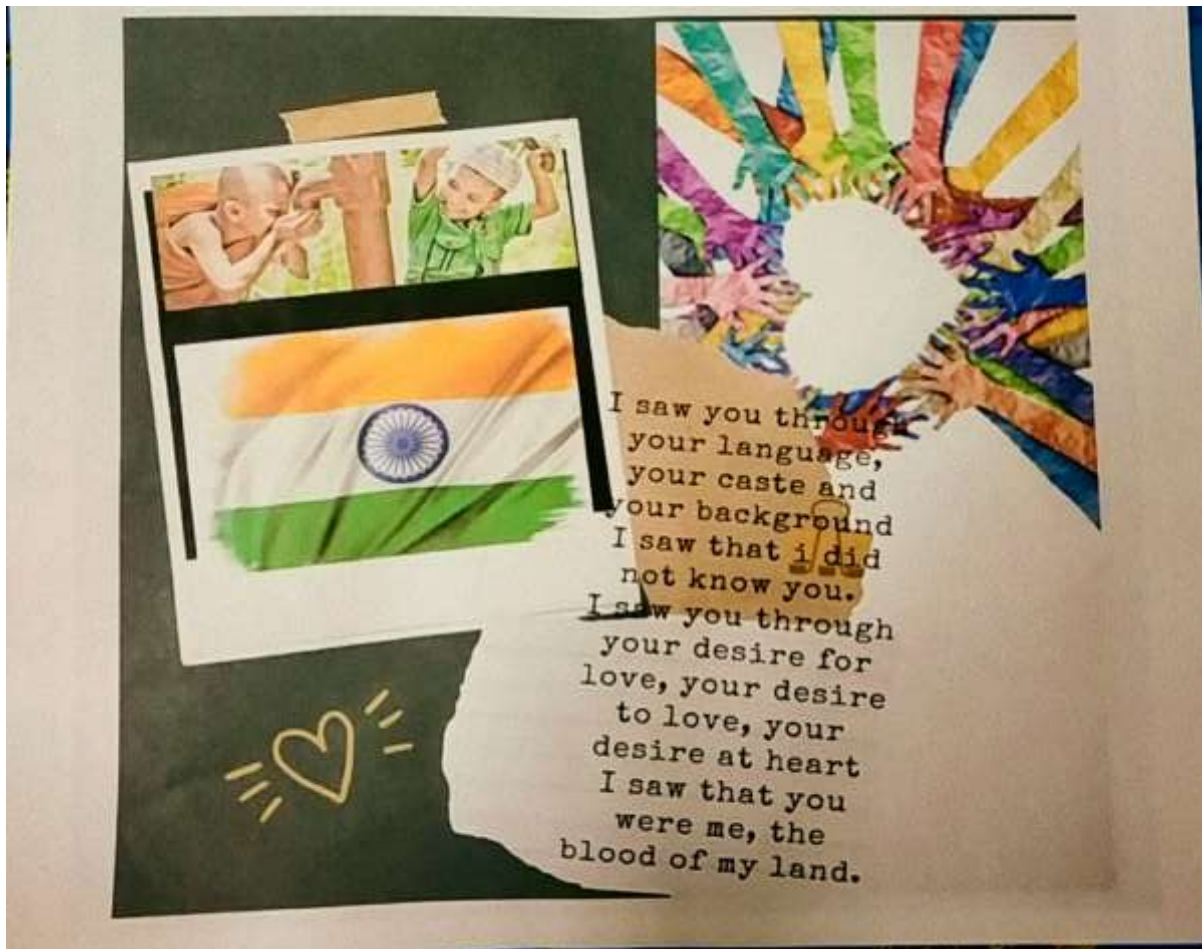 I saw you through
your language,
your caste and
your background
I saw that i did
not know you.
I saw you through
your desire for
love, your desire
to love, your
desire at heart
I saw that you
were me, the
blood of my land.